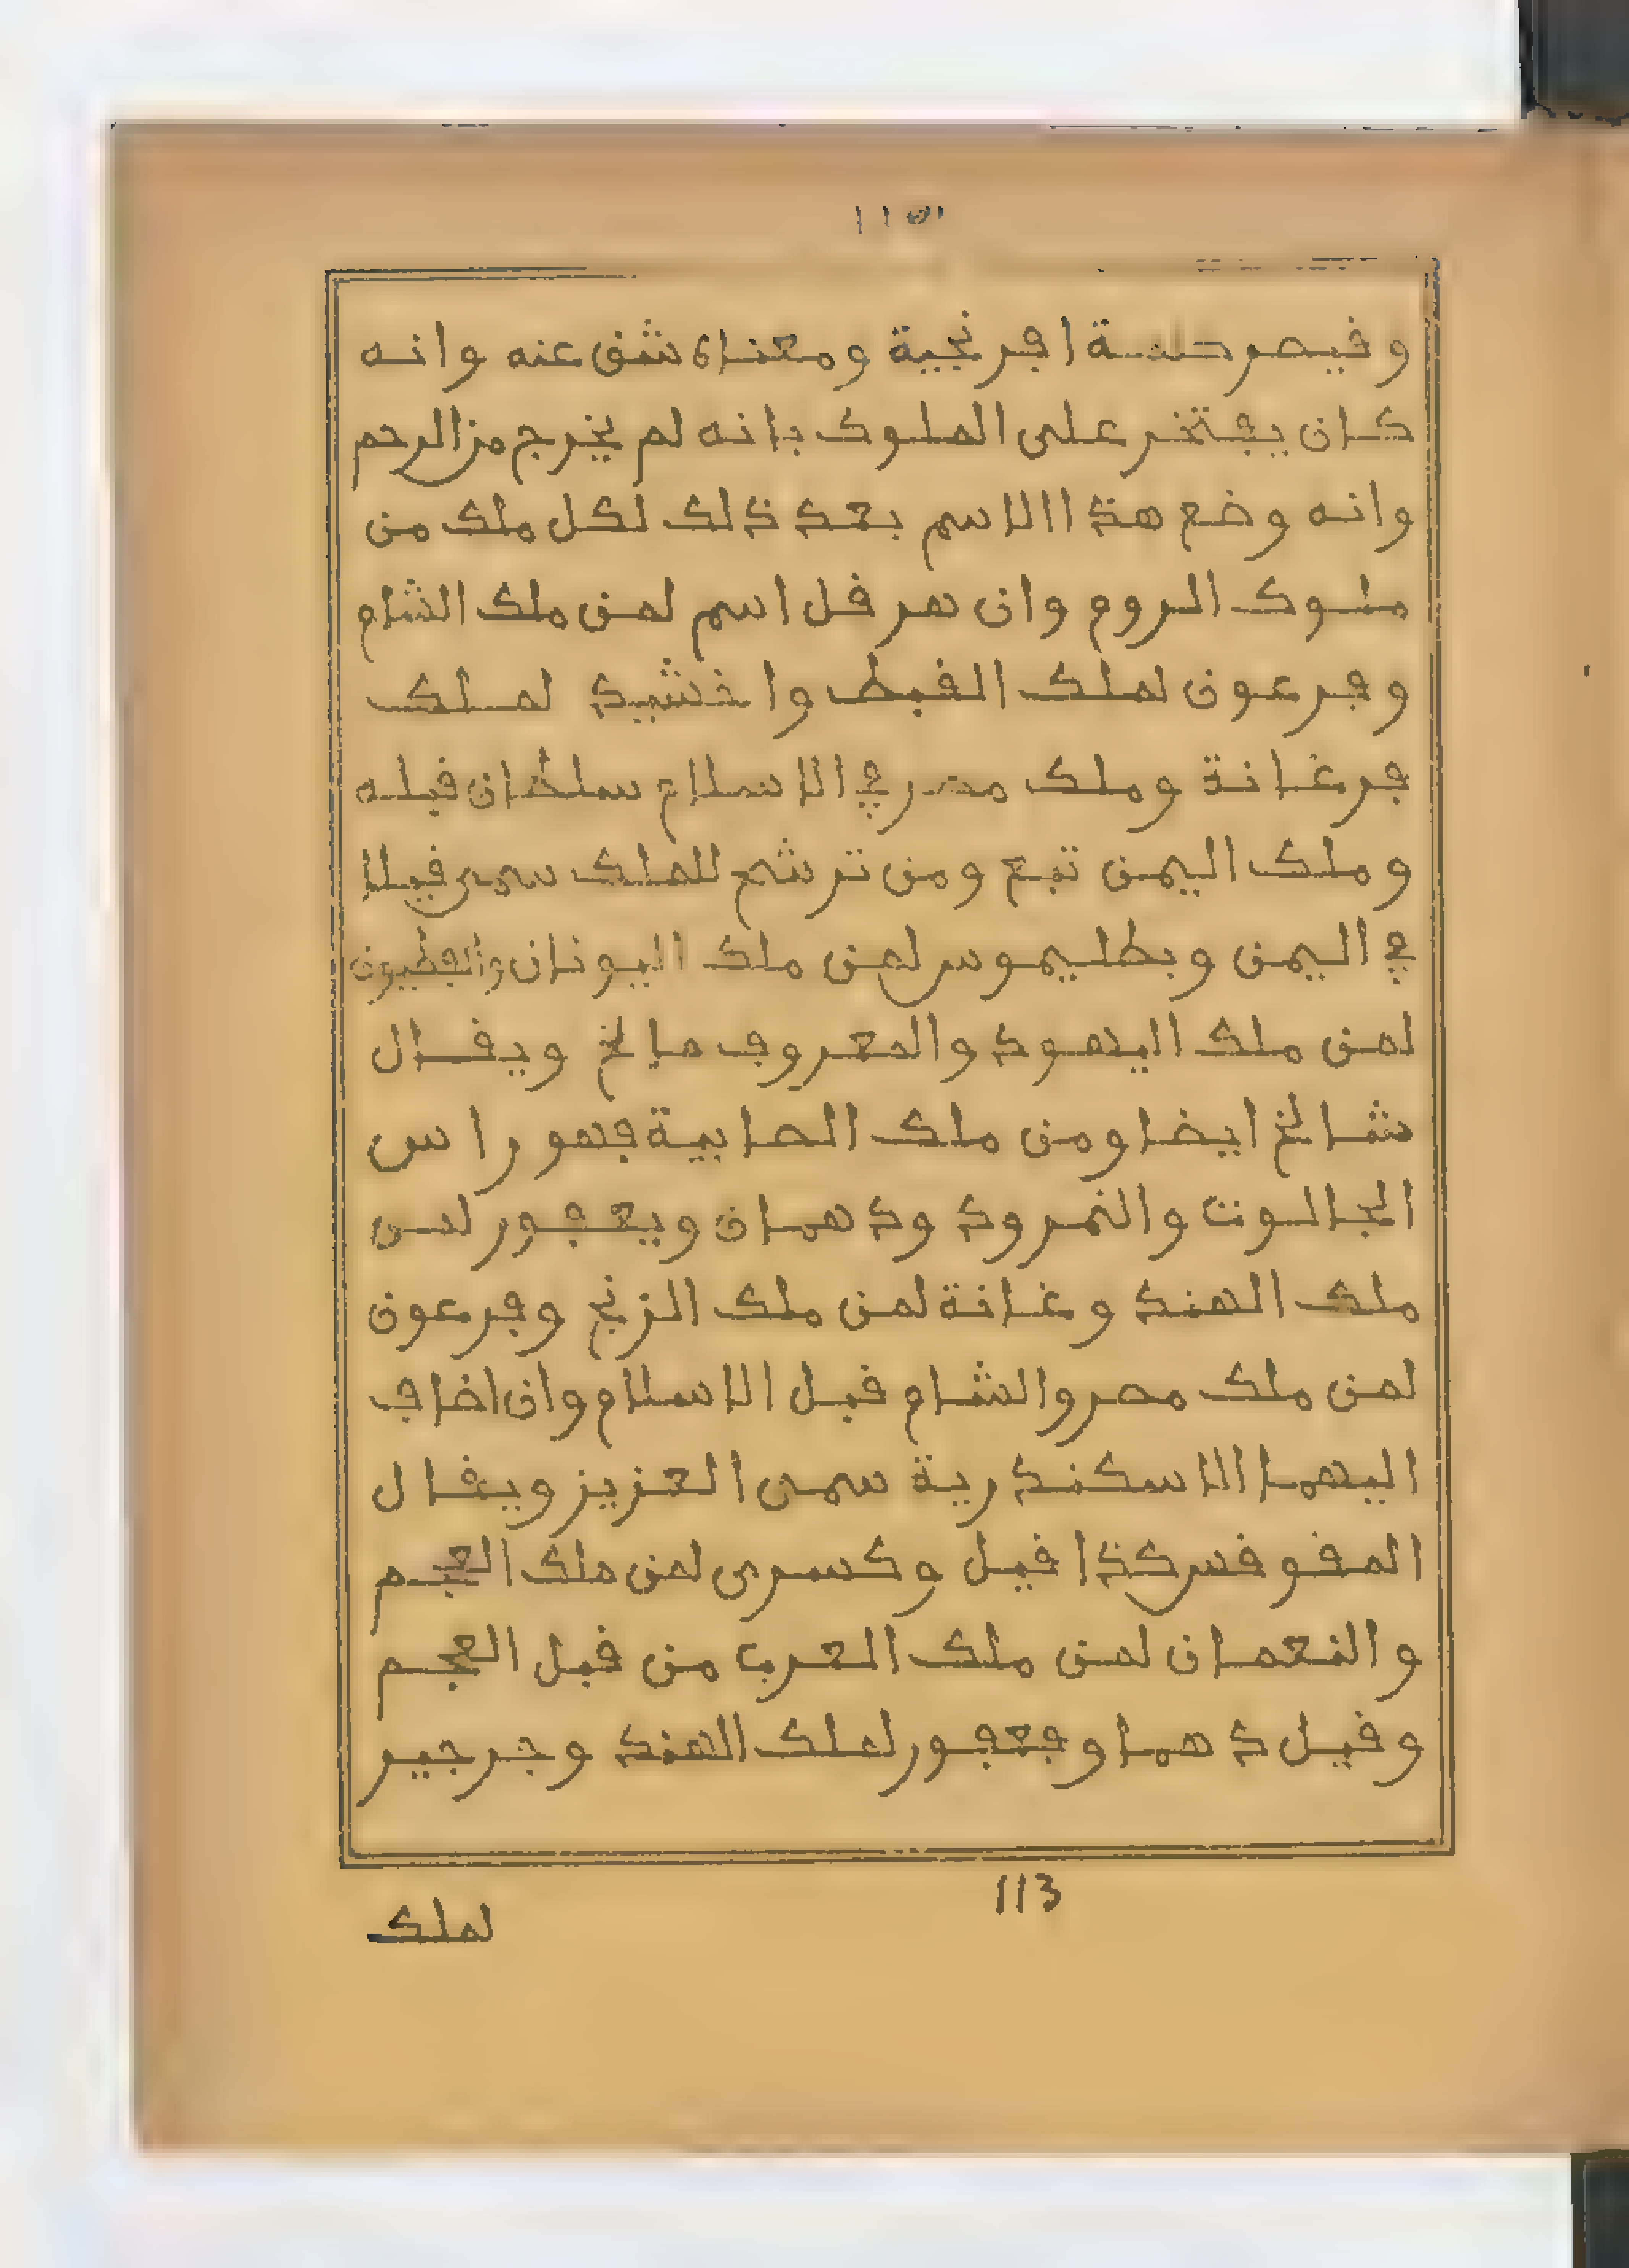 وقيصر كلمة افرنجية ومعناه شق عنه وانه
كان يفتخر على الملوك بانه لم يخرج من الرحم
وانه وضع هذا الاسم بعد ذلك لكل ملك من
ملوك الروم وان هرقل اسم لمن ملك الشام
وفرعون لملك القبط واخشيد لملك
فرغانة وملك مصر في الاسلام سلطان قبله
وملك اليمن تبع ومن ترشح للملك سمى قيلا
في اليمن وبطليموس لمن ملك اليونان والفطيون
لمن ملك اليهود والمعروف مالخ ويقال
شالخ ايضا ومن ملك الصابية فهو راس
الجالوت والنمرود ودهمان ويعفور لمن
ملك الهند وغانة لمن ملك الزنج وفرعون
لمن ملك مصر والشام قبل الاسلام وان اضاف
اليهما الاسكندرية سمى العزيز ويقال
المقوقس كذا قيل وكسرى لمن ملك العجم
والنعمان لمن ملك العرب من قبل العجم
وقيل دهما وفعفور لملك الهند وجرجير
113
لملك